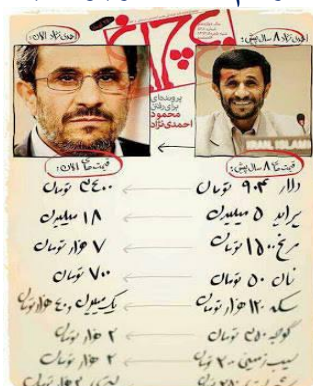 احمدی نژاد ۸ سال پیش:
احمدی نژاد الان:
پرونده‌ای
برای رفتن
محمود
احمدی‌نژاد
قیمت ها ۸ سال پیش:
قیمت ها الان:
دلار ۹۰۴ تومان
۳۴۰۰ تومان
پراید ۵ میلیون
۱۸ میلیون
مرغ ۱۵۰۰ تومان
۷ هزار تومان
نان ۵۰ تومان
۷۰۰ تومان
سکه ۱۲۰ هزار تومان
یک میلیون و ۴۰۰ هزار تومان
گوجه ۳۵۰ تومان
۲ هزار تومان
سیب زمینی ۲۰۰ تومان
۲ هزار تومان